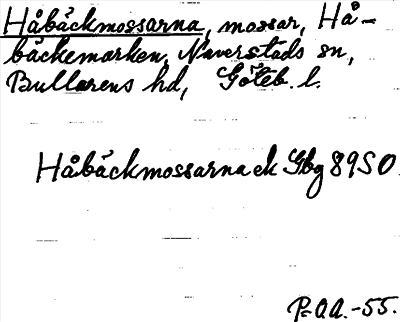 Håbäckmossarna, mossar, Hå-
bäckemarken, Naverstads sn,
Bullarens hd, Göteb. l.
Håbäckmossarna ek Gbg 89 SO
P.O.A. -55.